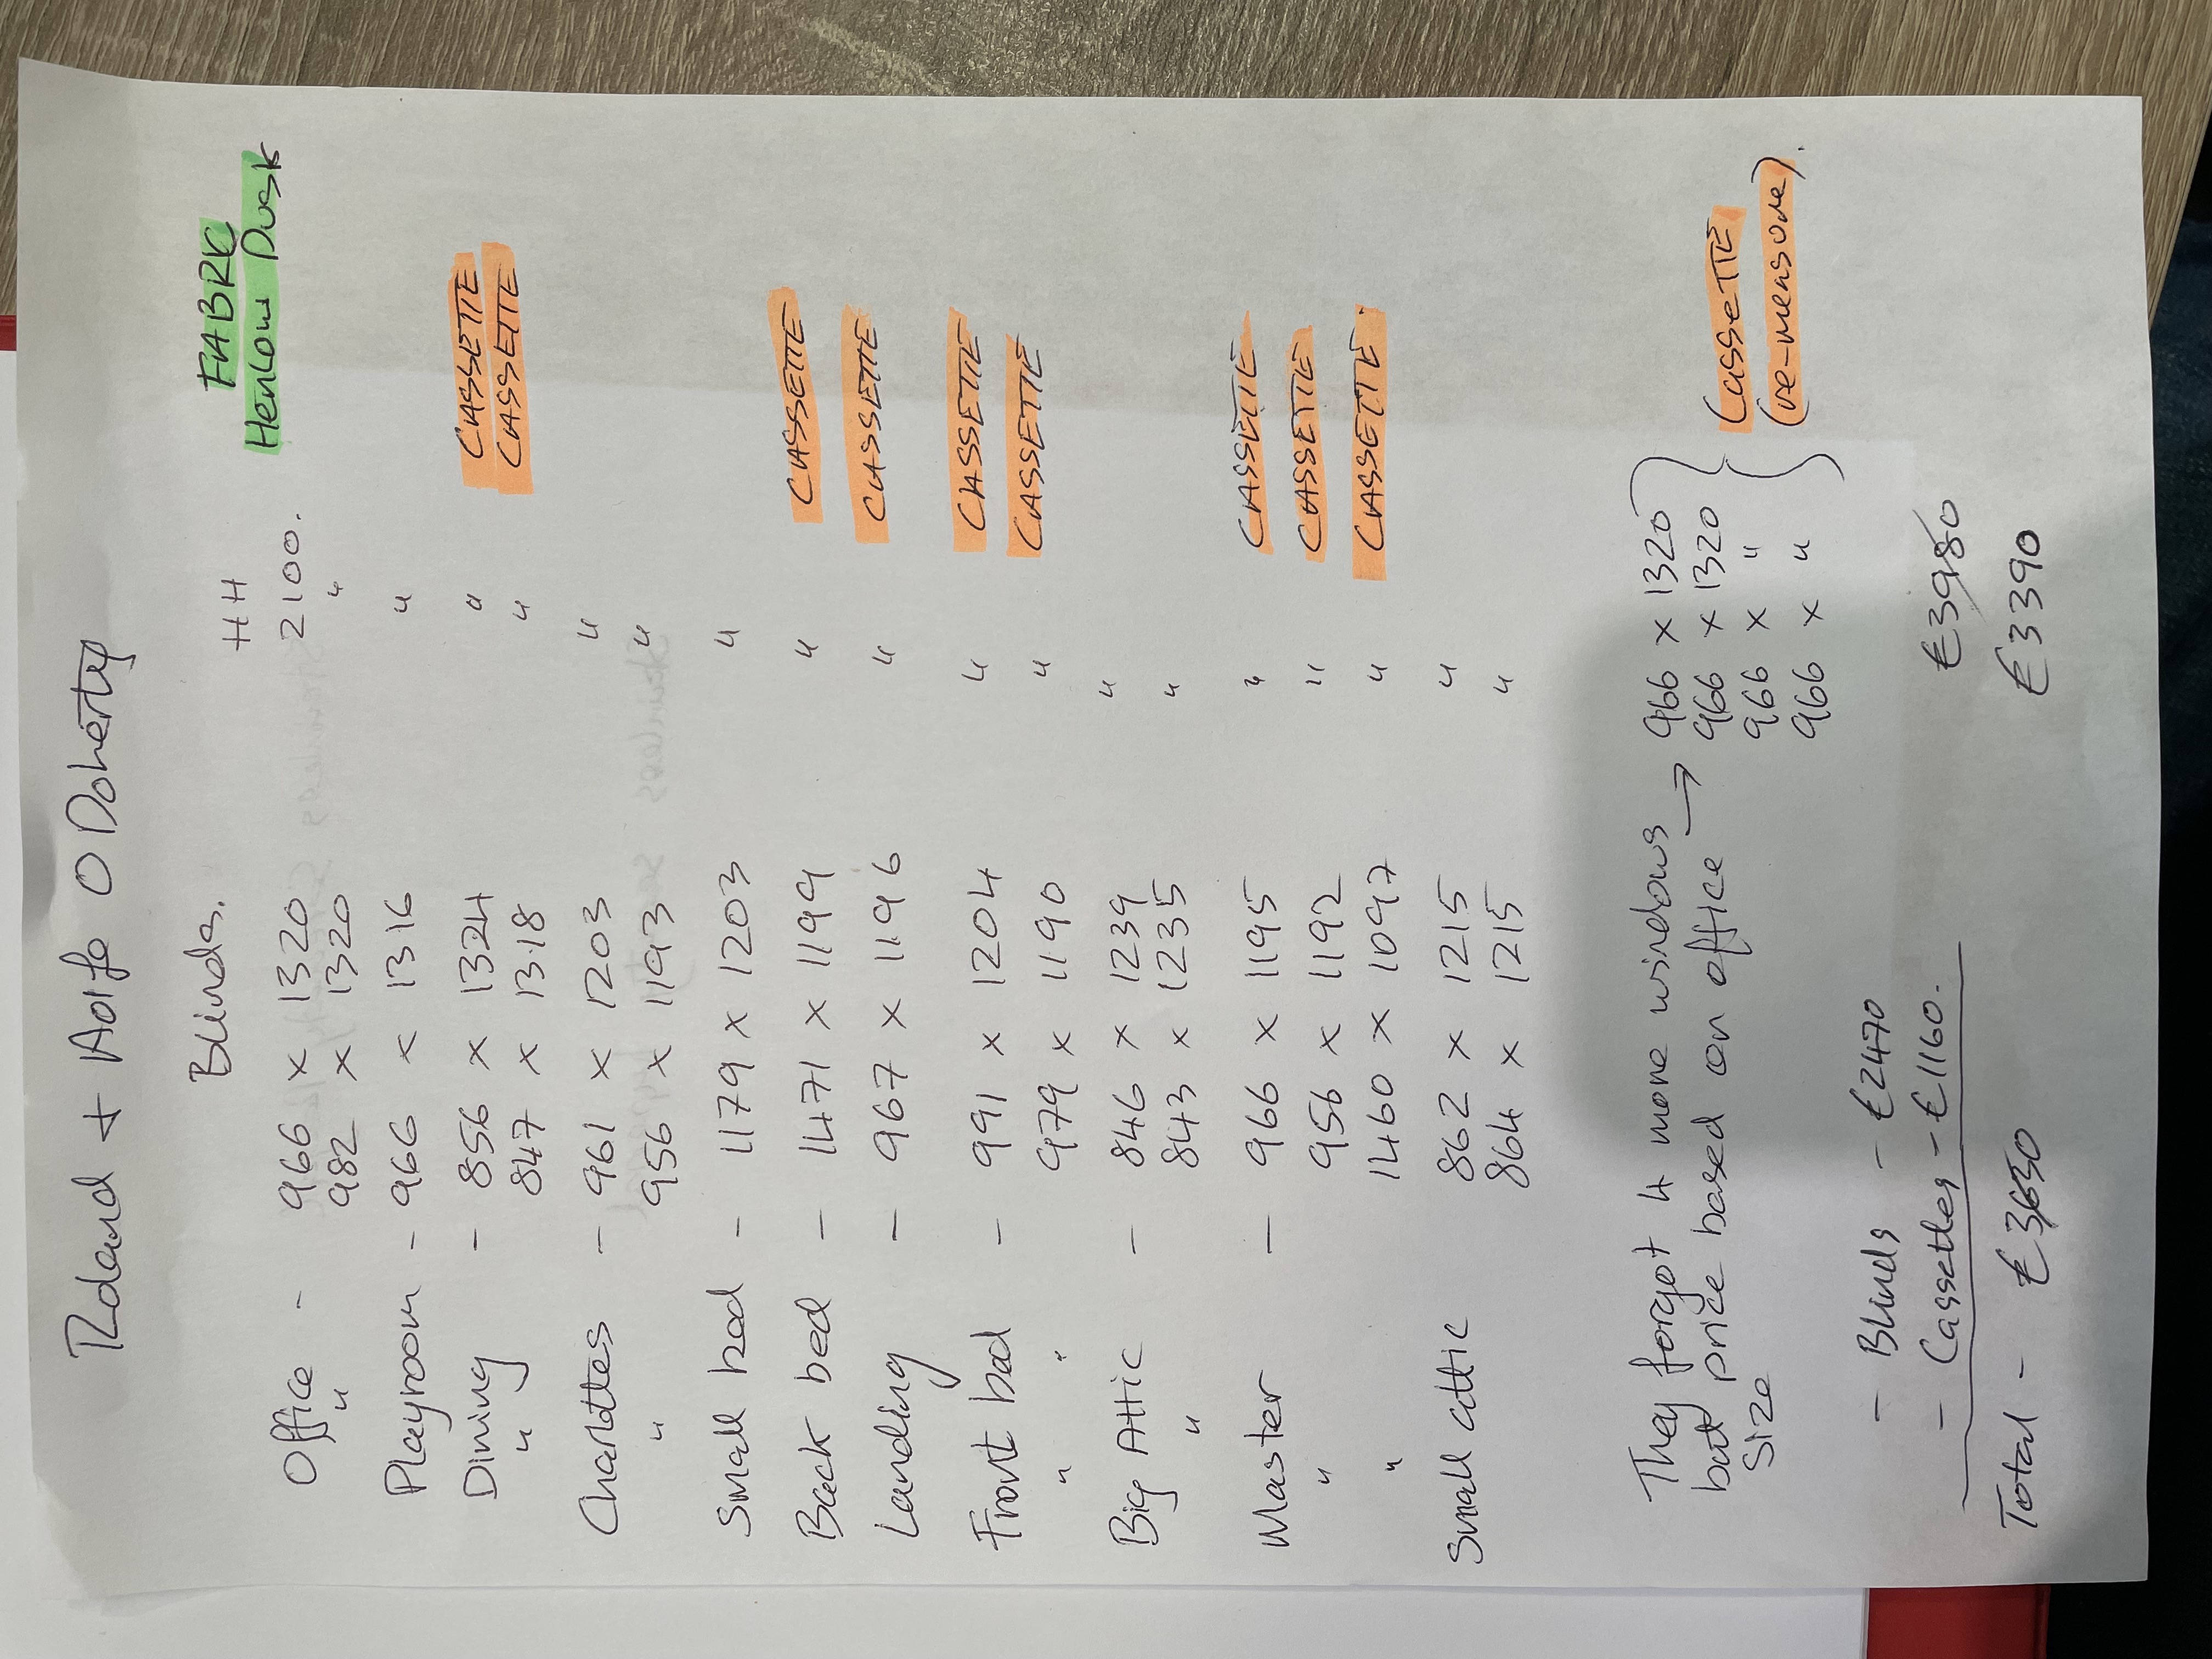 Roland + Aoife O Doherty
Blinds. HH FABRIC
Henlow Dusk
Office - 966 x 1320 2100.
" 982 x 1320 "
Playroom - 966 x 1316 "
Dining - 856 x 1324 " CASSETTE
" 847 x 1318 " CASSETTE
Charlottes - 961 x 1203 "
" 956 x 1193 "
Small bed - 1179 x 1203 "
Back bed - 1471 x 1199 " CASSETTE
Landing - 967 x 1196 " CASSETTE
Front bed - 991 x 1204 " CASSETTE
" " 979 x 1190 " CASSETTE
Big Attic - 846 x 1239 "
" 843 x 1235 "
Master - 966 x 1195 " CASSETTE
" 956 x 1192 " CASSETTE
" 1460 x 1097 " CASSETTE
Small attic 862 x 1215 "
864 x 1215 "
They forgot 4 more windows → 966 x 1320
but price based on office 966 x 1320 Cassette
size 966 x " (re-measure).
966 x "
- Blinds - €2470
- Cassettes - €1160. €3980
Total - €3630 €3390